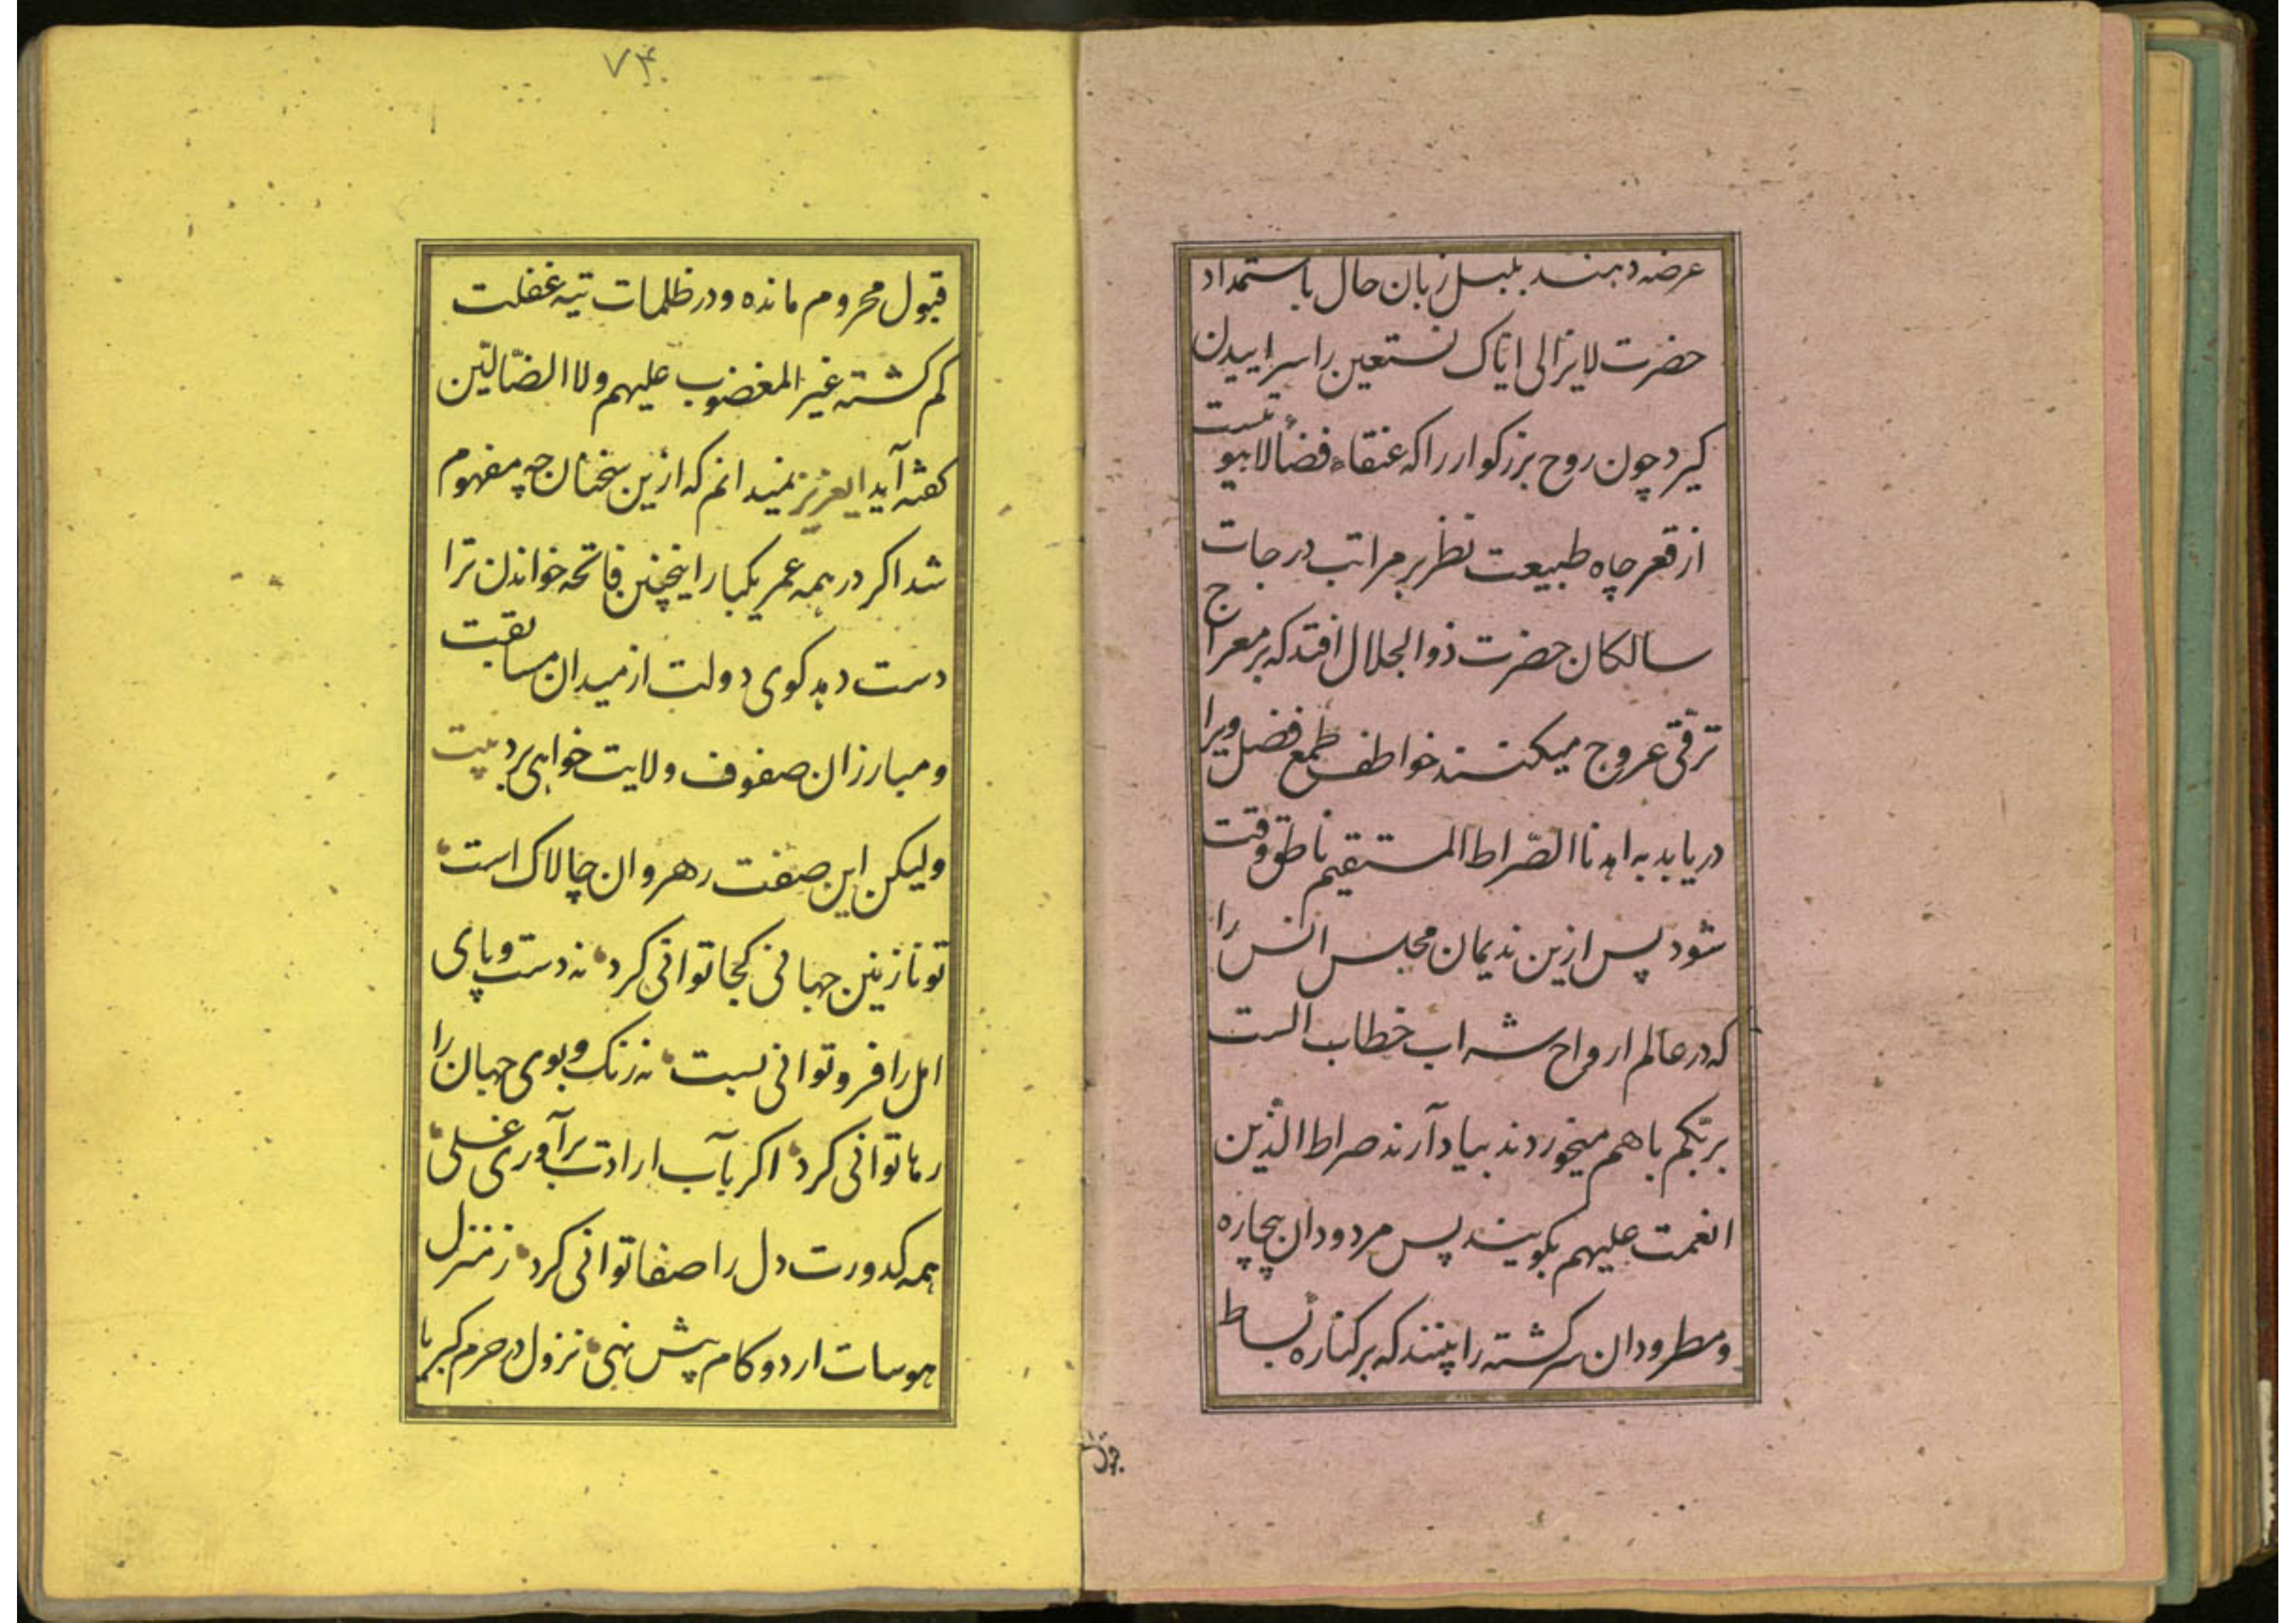 عرضه دهند بلبل زبان حال باستمداد
حضرت لایزالی ایاک نستعین را سراییدن
کیرد چون روح بزرکوار را که عنقاء فضألاهوتیست
از قعر چاه طبیعت نظر بر مراتب درجات
سالکان حضرت ذوالجلال افتد که بر معراج
ترقی عروج میکنند خواطف طمع فضل ویرا
دریابد به اهدنا الصّراط المستقیم ناطق وقت
شود پس ازین ندیمان مجلس انس را
که در عالم ارواح شراب خطاب الست
بربکم با هم میخوردند بیاد آرند صراط الذین
انعمت علیهم بکویند پس مردودان بیچاره
و مطرودان سرکشته را بینند که بر کناره بساط
۷۴
قبول محروم مانده و در ظلمات تیه غفلت
کم کشته غیر المغضوب علیهم ولا الضّالّین
کفته آید ایعزیز نمیدانم که ازین سخنان چه مفهوم
شد اکر در همه عمر یکبار اینچنین فاتحه خواندن ترا
دست دهد کوی دولت از میدان مسابقت
و مبارزان صفوف ولایت خواهی برد بیت
ولیکن این صفت رهروان چالاک است
تو نازنین جهانی کجا توانی کرد نه دست و پای
امل را فرو توانی بست نه رنک و بوی جهان را
رها توانی کرد اکر بآب ارادت برآوری غسلی
همه کدورت دل را صفا توانی کرد ز منزل
هوسات ار دو کام پیش نهی نزول در حرم کبریا